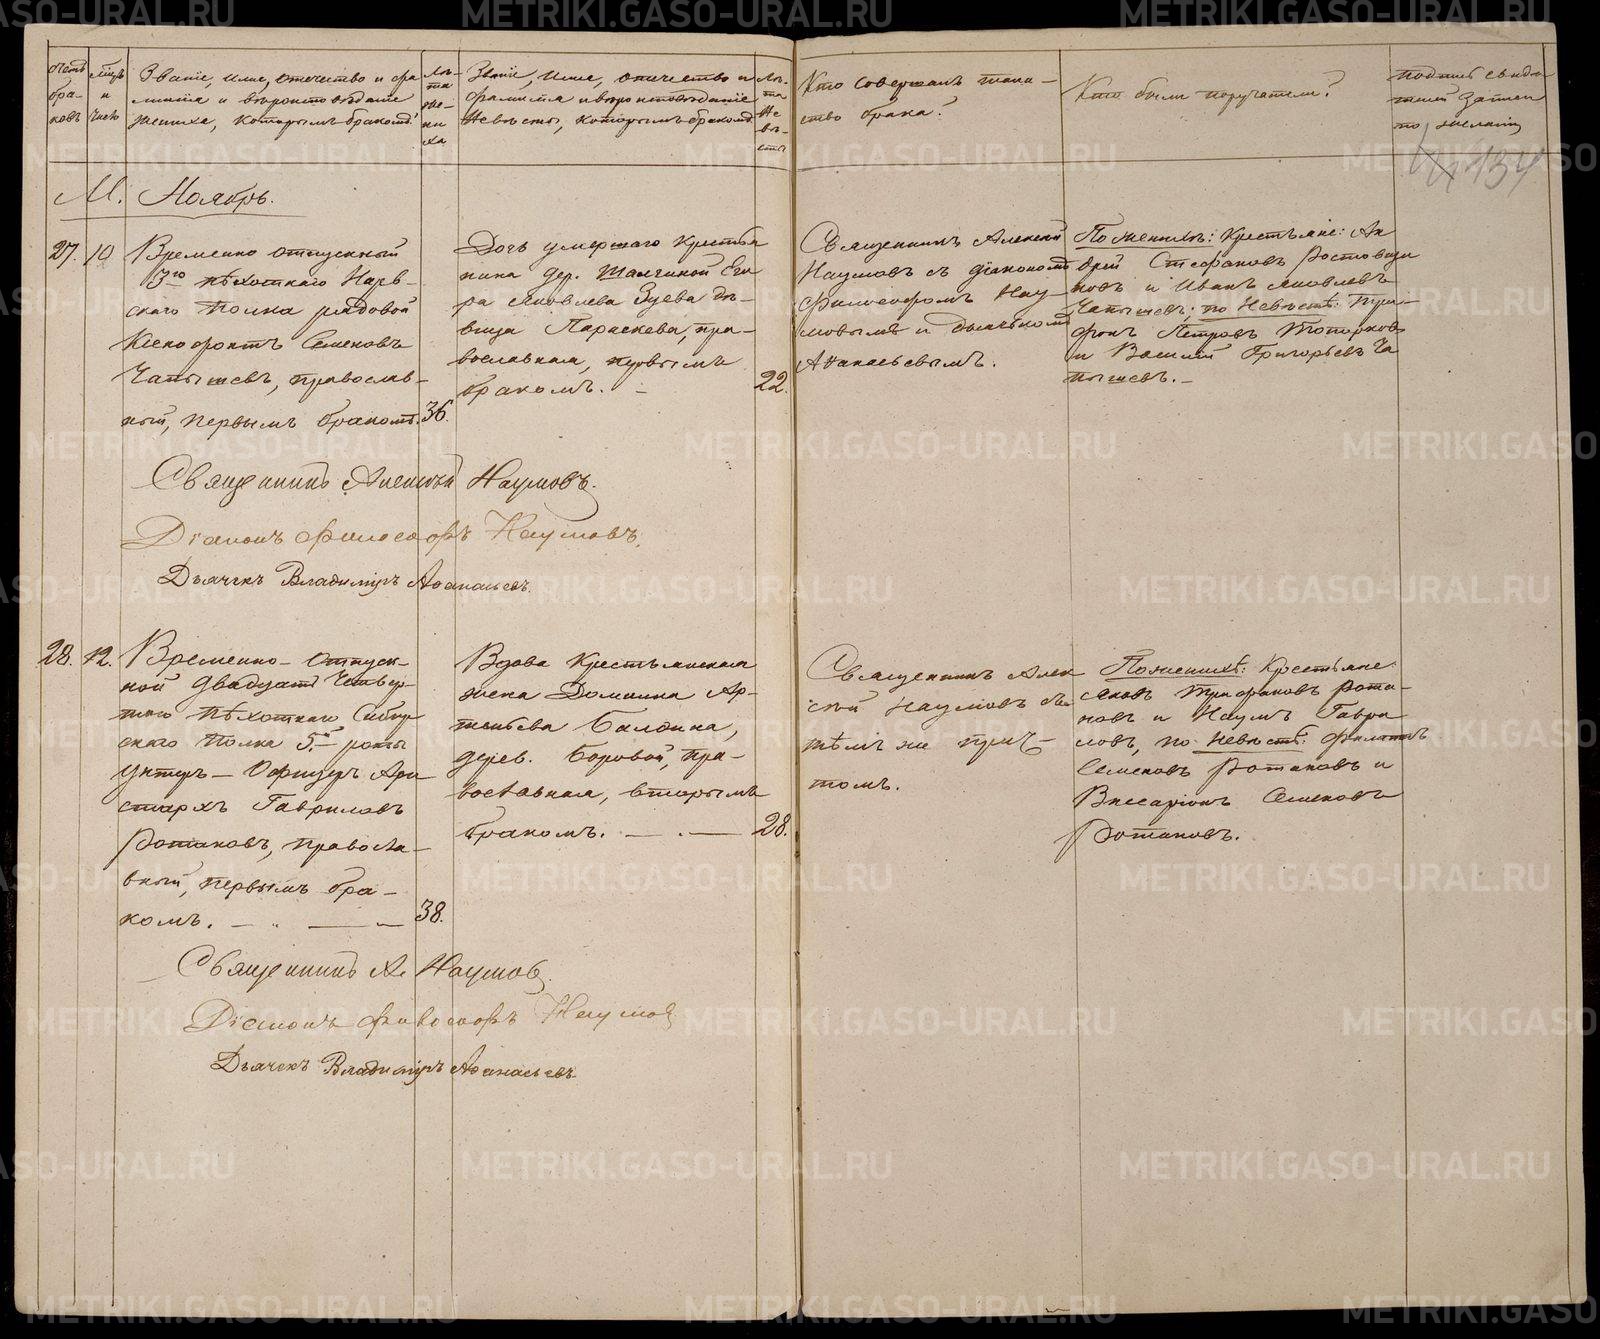 Счетъ бра-ковъ
Мцъ и число
Званіе, имя, отечество и фа
милія и вѣроисповѣданіе
жениха, которымъ бракомъ?
Лѣ-
та
же-
ни
ха
Званіе, имя, отечество и
фамилія и вѣроисповѣданіе
невѣсты, которымъ бракомъ
Лѣ-
та
Не
вѣ-
сты
Кто совершалъ таин-
ство брака?
Кто были поручители?
Подпись свидѣ
телей записи
по желанію
134
М. Ноябрь.
27. 10
Временно отпускный
3го пѣхотнаго Нарв-
скаго полка рядовой
Ксенофонтъ Семеновъ
Чапышевъ, православ-
ный, первымъ бракомъ.
36.
Дочь умершаго крестья
нина дер. Егo
ра Яковлева Зуева дѣ-
вица Параскева, пра-
вославная, первымъ
бракомъ. -
22.
Священникъ Алексій
Наумовъ съ діакономъ
Философомъ Нау-
мовымъ и дьячкомъ
Аѳанасьевымъ.
По женихѣ: Крестьяне: Ан
дрей Стефановъ Ростовщи
ковъ и Иванъ Яковлевъ
Чапышевъ; по невѣстѣ: Три-
фонъ Петровъ Топорковъ
и Василій Григорьевъ Ча
пышевъ. -
Священникъ Алексій Наумовъ.
Діаконъ Философъ Наумовъ.
Дьячекъ Владиміръ Аѳанасьевъ.
28. 12.
Временно-отпуск-
ной двадцать четвер-
таго пѣхотнаго Сибир
скаго полка 5й роты
унтеръ-офицеръ Ари
стархъ Гавриловъ
Ротановъ, правосла-
вный, первымъ бра-
комъ. — .. — —
38.
Вдова крестьянская
жена Домника Ар-
темьева Балдина,
дерев. Боровой, пра-
вославная, вторымъ
бракомъ. — . —
28.
Священникъ Алек
сій Наумовъ съ
тѣмъ же прич-
томъ.
По женихѣ: Крестьяне:
Яковъ Трифоновъ Рота-
новъ и Наумъ Гаври
ловъ, по невѣстѣ: Филиппъ
Семеновъ Ротановъ и
Виссаріонъ Семеновъ
Ротановъ.
Священникъ А. Наумовъ.
Діаконъ Философъ Наумовъ
Дьячекъ Владиміръ Аѳанасьевъ
METRIKI.GASO-URAL.RU